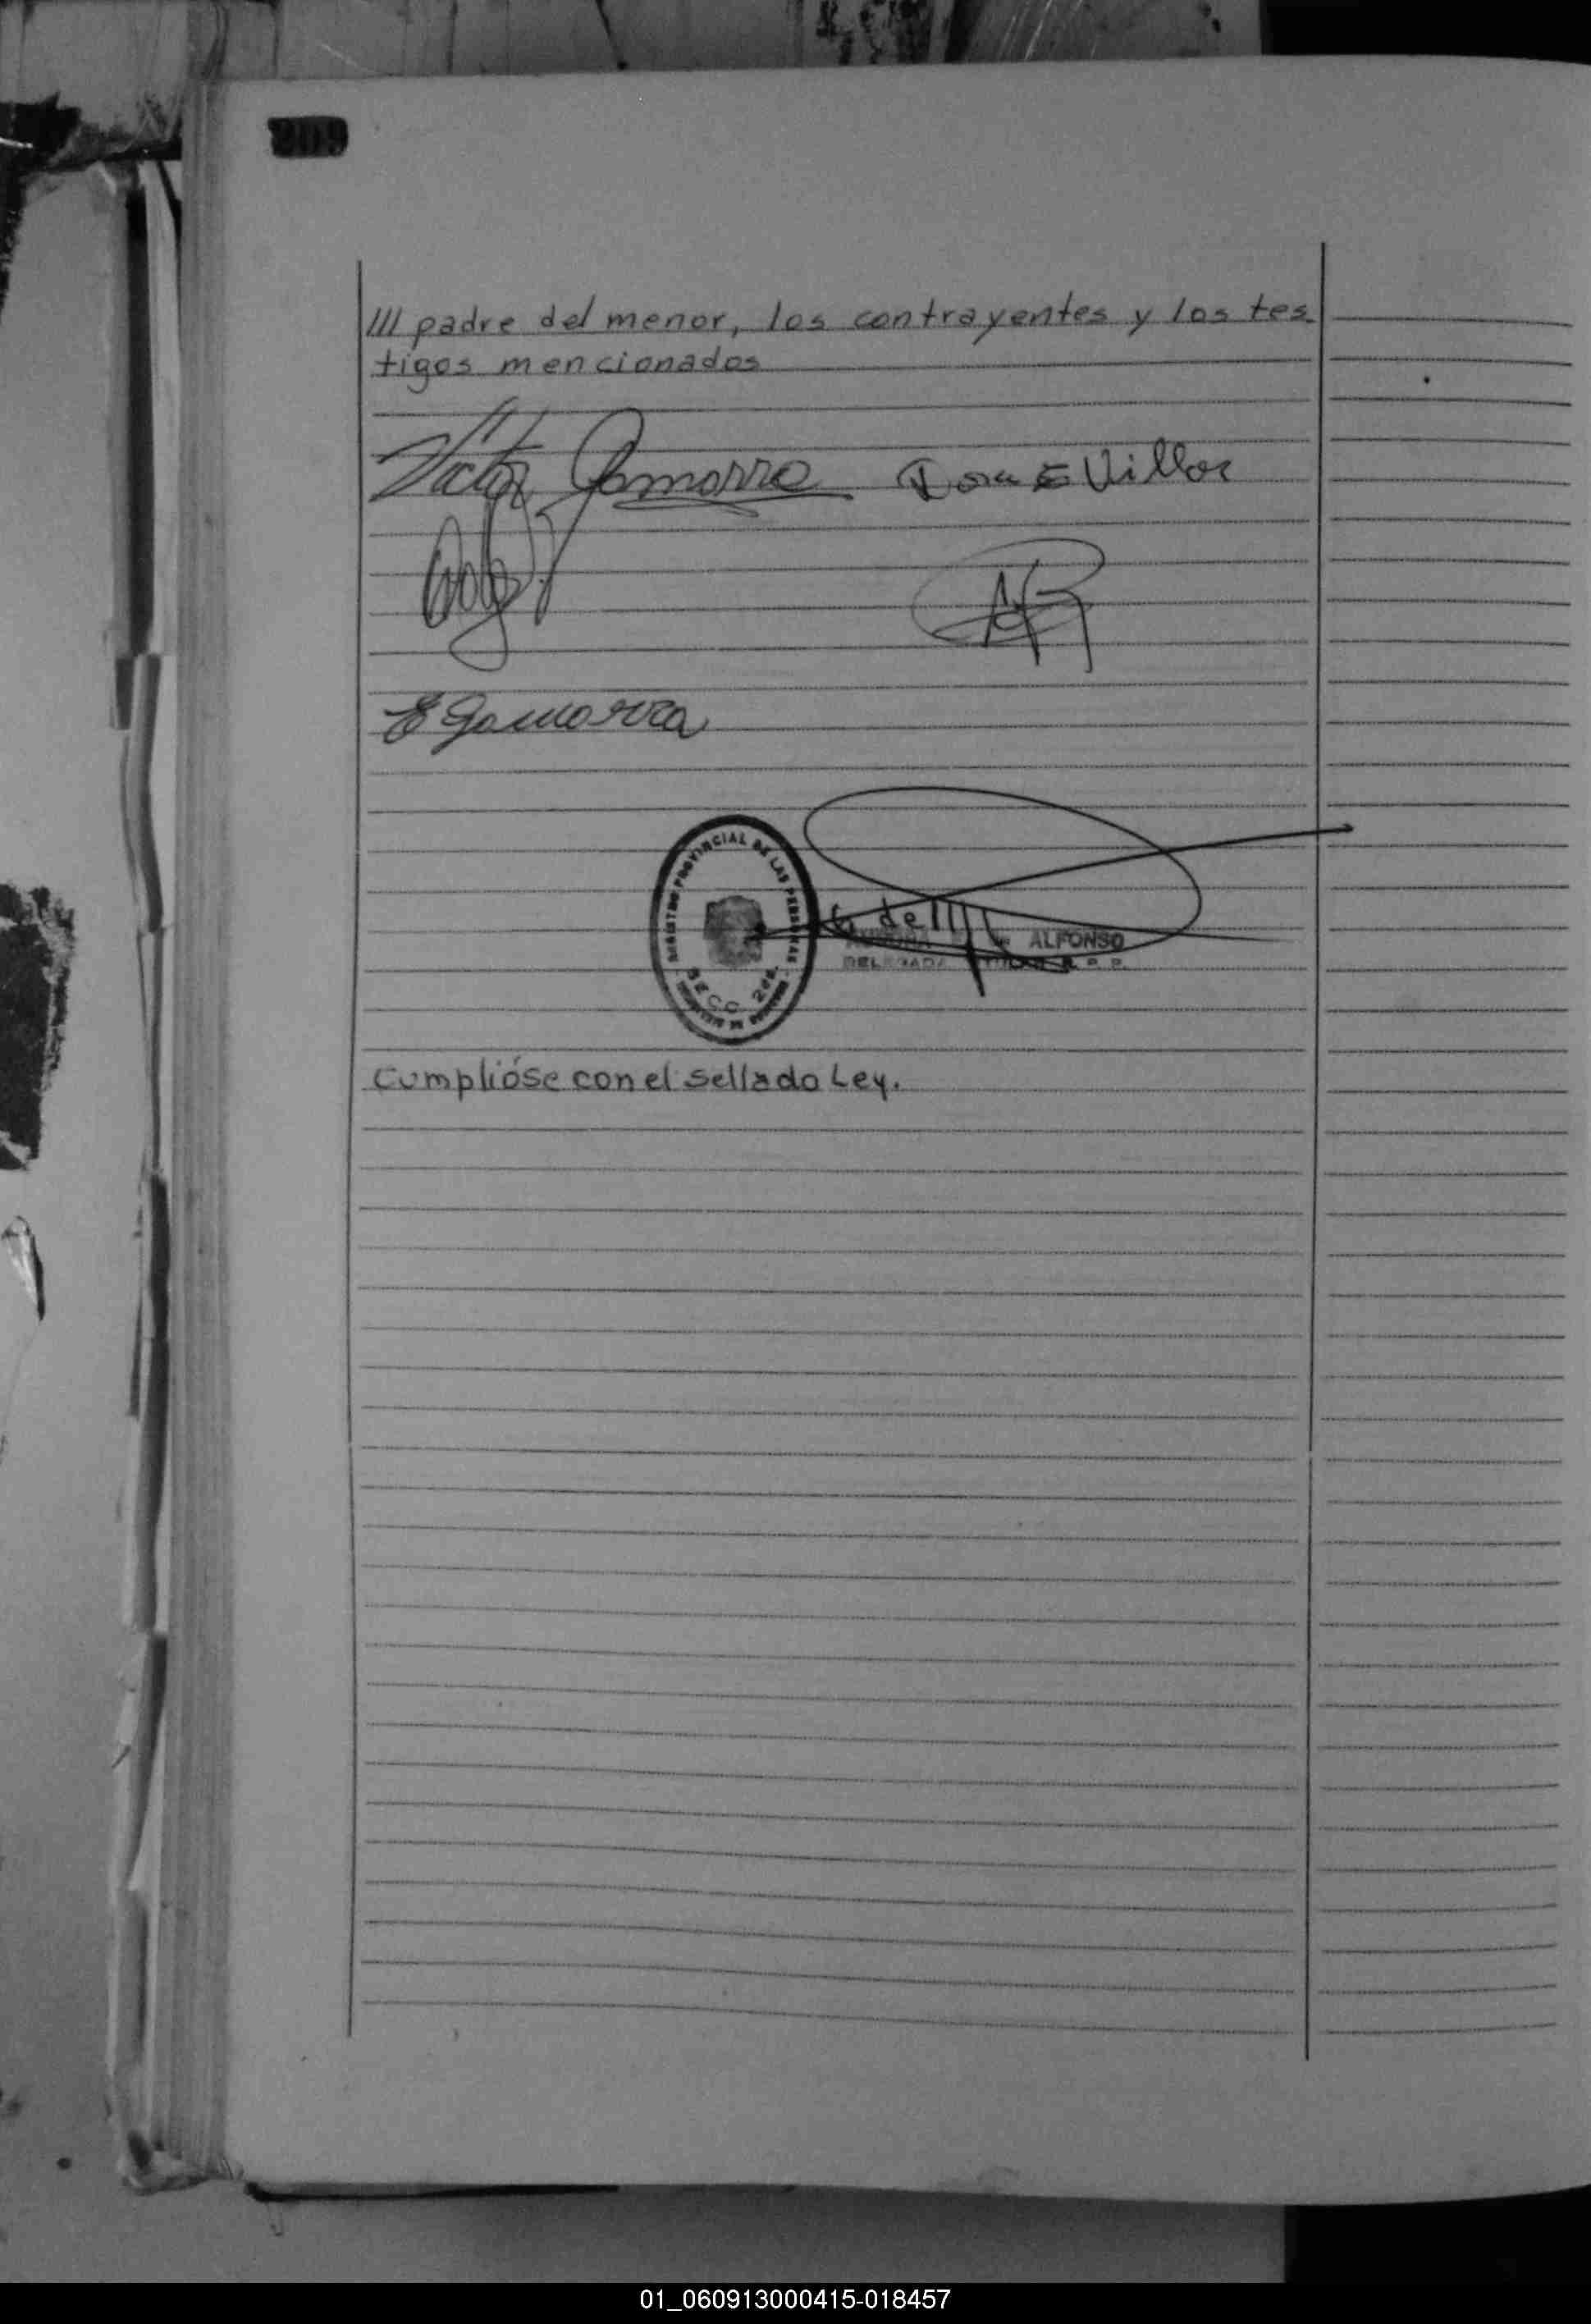 /// padre del menor, los contrayentes y los tes
tigos mencionados
Victor Gamarra Dora E Villar
E Gamarra
REGISTRO PROVINCIAL DE LAS PERSONAS
SECC 2da
de ALFONSO
DELEGADA R. P. P.
Cumplióse con el sellado Ley.
01_060913000415-018457